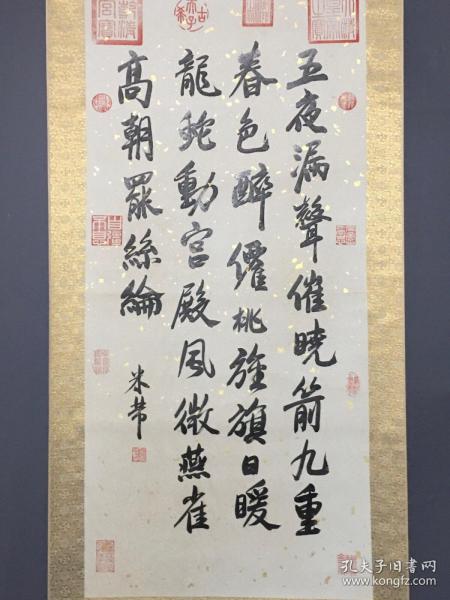 古希天子
五夜漏聲催曉箭九重
春色醉僊桃旌旗日暖
龍蛇動宮殿風微燕雀
高朝罷絲綸
米芾
孔夫子旧书网
www.kongfz.com